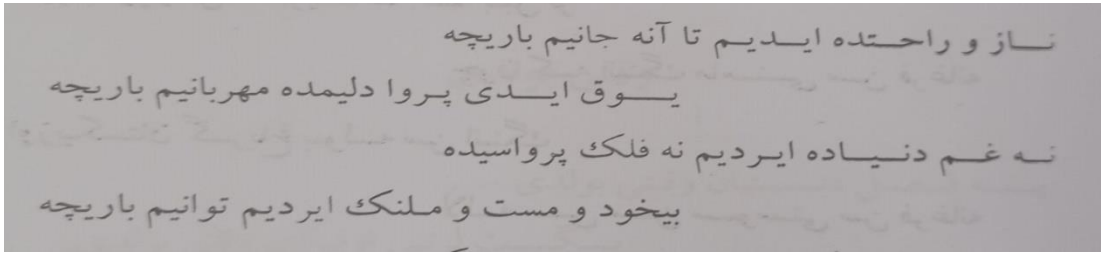 ناز و راحتده ایدیم تا آنه جانیم باریچه
یوق ایدی پروا دلیمده مهربانیم باریچه
نه غم دنیاده ایردیم نه فلک پرواسیده
بیخود و مست و ملنک ایردیم توانیم باریچه